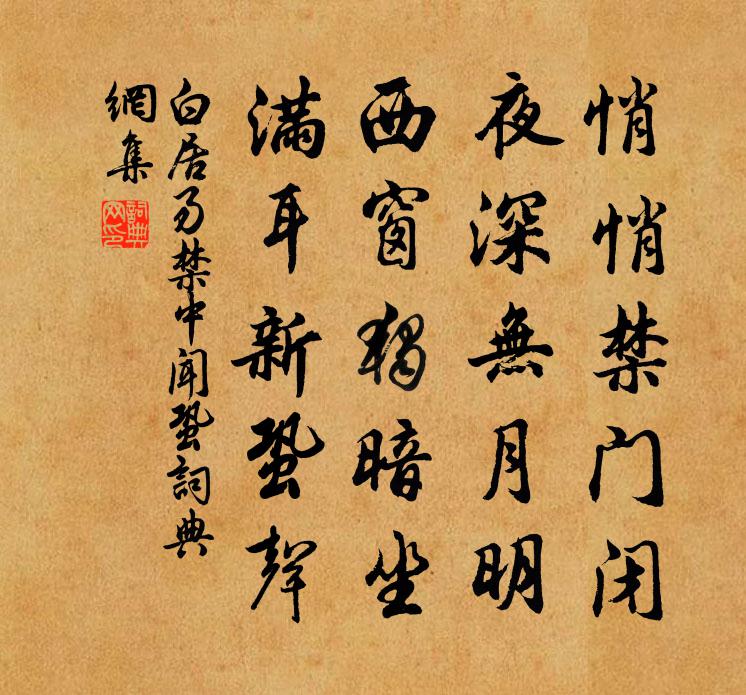 悄悄禁门闭
夜深無月明
西窗獨暗坐
滿耳新蛩聲
白居易禁中聞蛩詞典
網集
詞典
网印